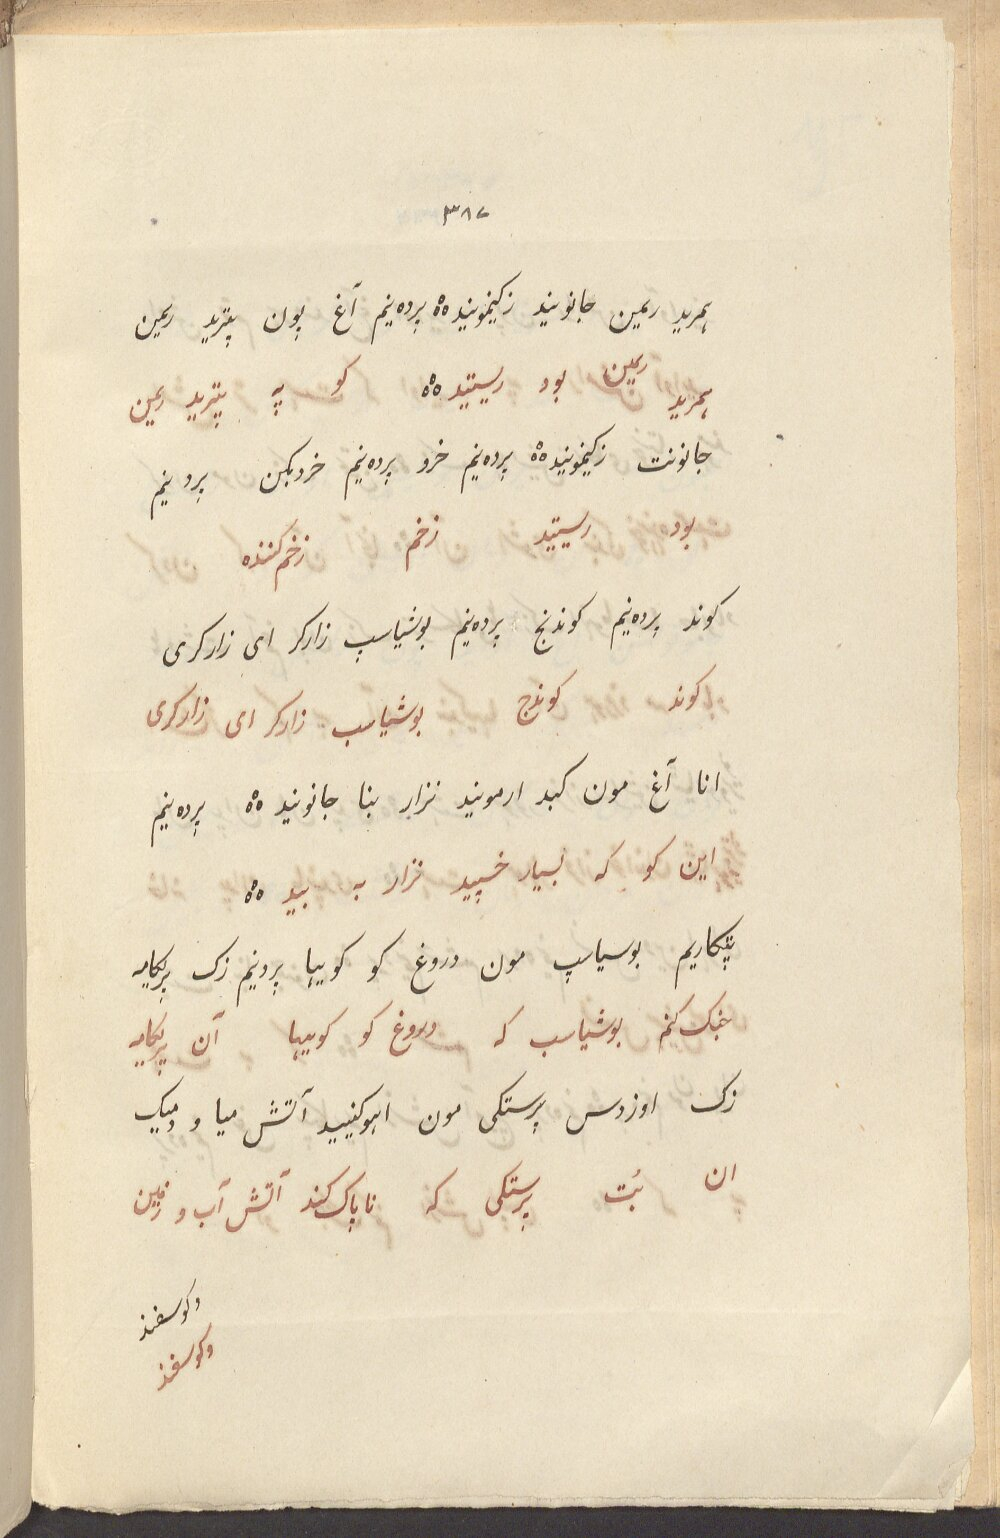 ۳۸۷
همرید ریمن جانونید زکیمونید ⁂ پردەنیم آغ پون پتیرید ریمن
همرید ریمن بود ریستید ⁂ کو په پتیرید ریمن
جانونت زکیمونید ⁂ پردەنیم خرد پردەنیم خردبکن پردنیم
بود ریستید زخم زخم کننده
کوند پردەنیم کوندنج پردەنیم بوشیاسپ زارکر ای زارکری
کوند کوندج بوشیاسب زارکر ای زارکری
انا آغ مون کبد ارمونید نزار بنا جانونید ⁂ پردەنیم
این کو که بسیار خسپید نزار به بید ⁂
پتکاریم بوسیاسپ مون دروغ کو کویبها پردنیم زک پریکامیه
خبک کنم بوشیاسب که دروغ کو کویبها آن پریکامیه
زک اوزدس پرستکی مون اهوکنیید آتش میا و دمیک
ان بُت پرستکی که ناپاک کند آتش آب و زمین
وکوسفند
وکوسفند